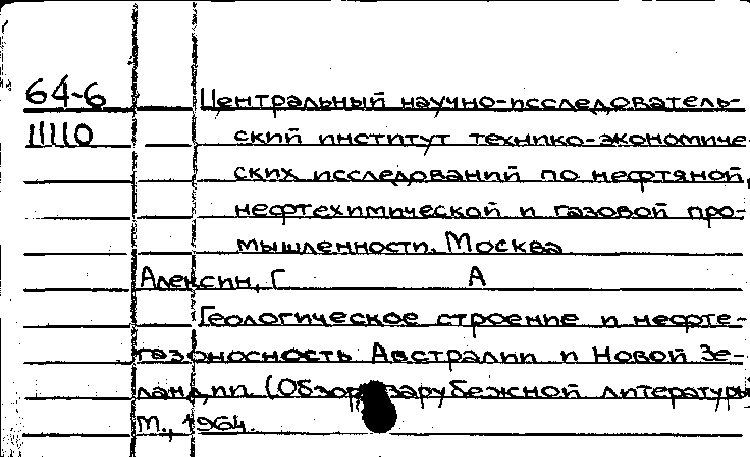 64-6 Центральный научно-исследователь-
11110 ский институт технико-экономиче
ских исследований по нефтяной,
нефтехимической и газовой про-
мышленности. Москва
Алексин, Г А
Геологическое строение и нефте-
газоносность Австралии и Новой Зе-
ландии. (Обзор зарубежной литературы
М., 1964.